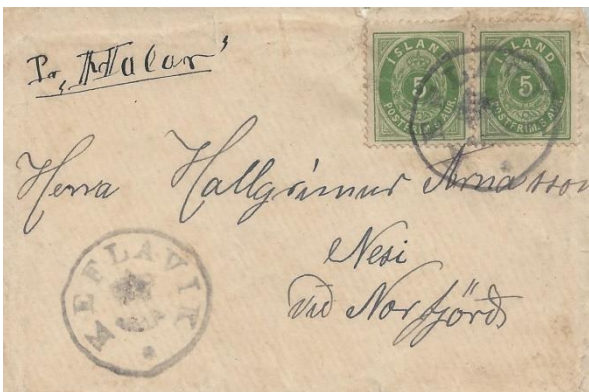 Pr „Holar“
ISLAND
5
POSTFRIM. 5 AUR.
ISLAND
5
POSTFRIM. 5 AUR.
Herra Hallgrímur Arnasson
Nesi
við Norfjörð
KEFLAVIK